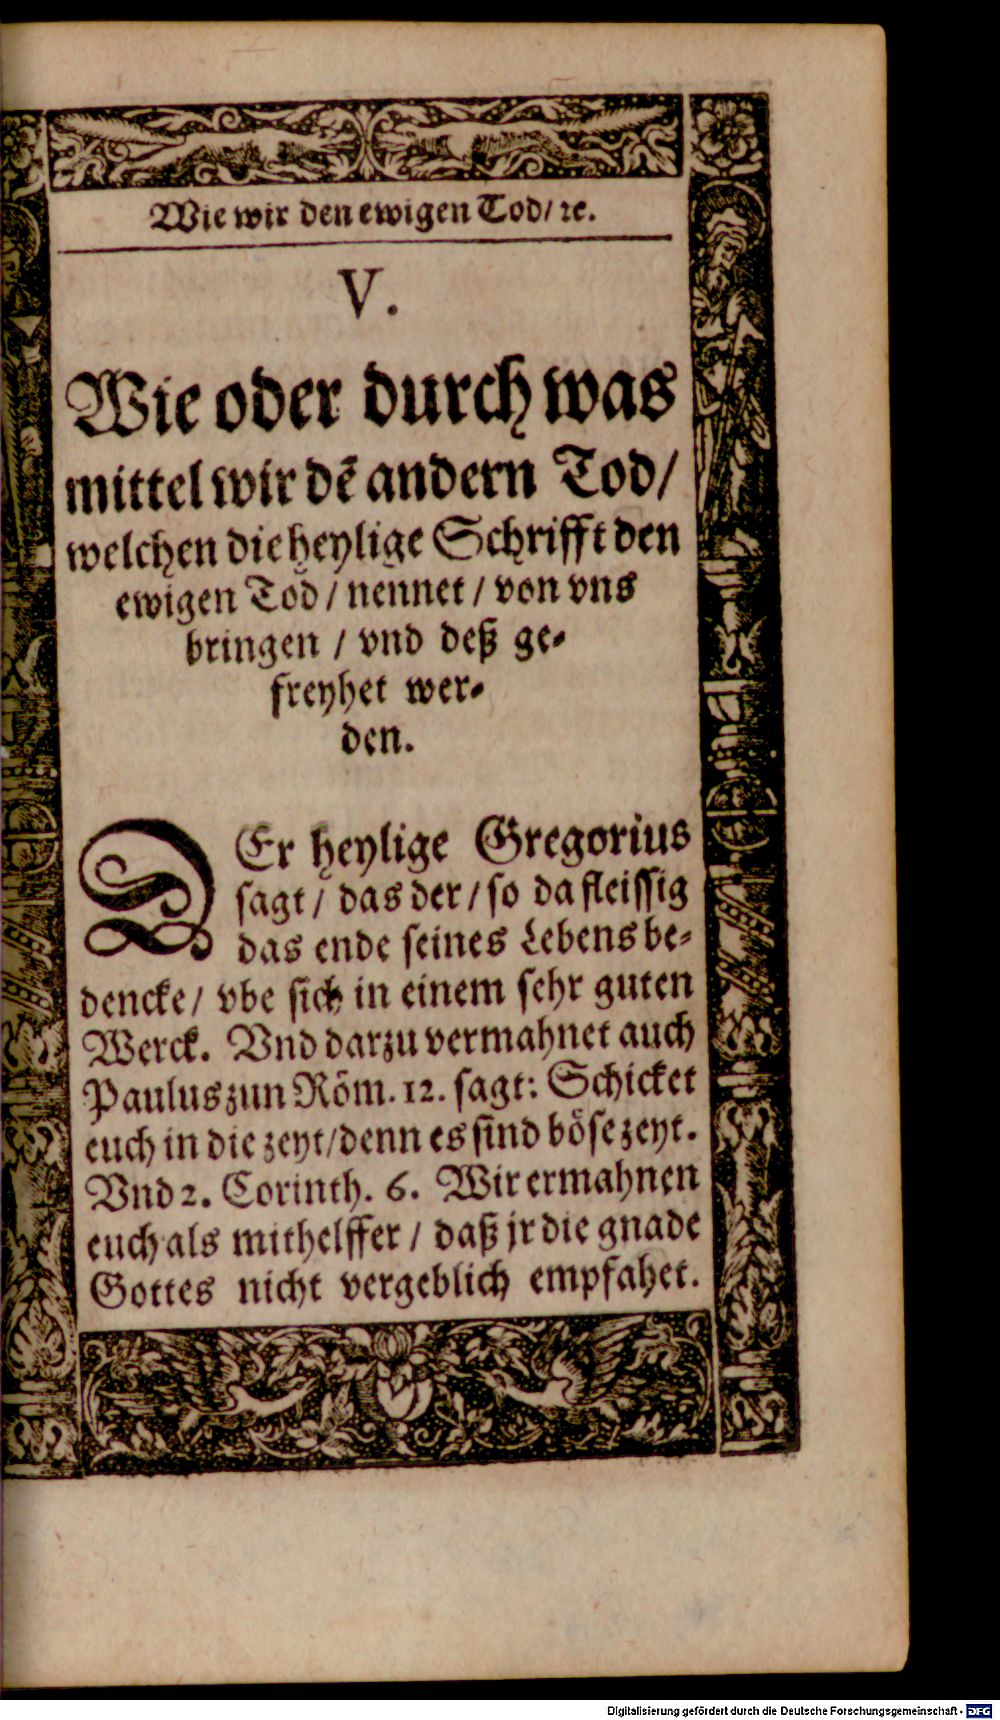 Wie wir den ewigen Tod/ ꝛc.
V.
Wie oder durch was
mittel wir dẽ andern Tod/
welchen die heylige Schrifft den
ewigen Tod / nennet / von vns
bringen / vnd deß ge-
freyhet wer-
den.
DEr heylige Gregorius
sagt / das der / so da fleissig
das ende seines Lebens be-
dencke / vbe sich in einem sehr guten
Werck. Vnd darzu vermahnet auch
Paulus zun Röm. 12. sagt: Schicket
euch in die zeyt/denn es sind böse zeyt.
Vnd 2. Corinth. 6. Wir ermahnen
euch als mithelffer / daß jr die gnade
Gottes nicht vergeblich empfahet.
Digitalisierung gefördert durch die Deutsche Forschungsgemeinschaft - DFG